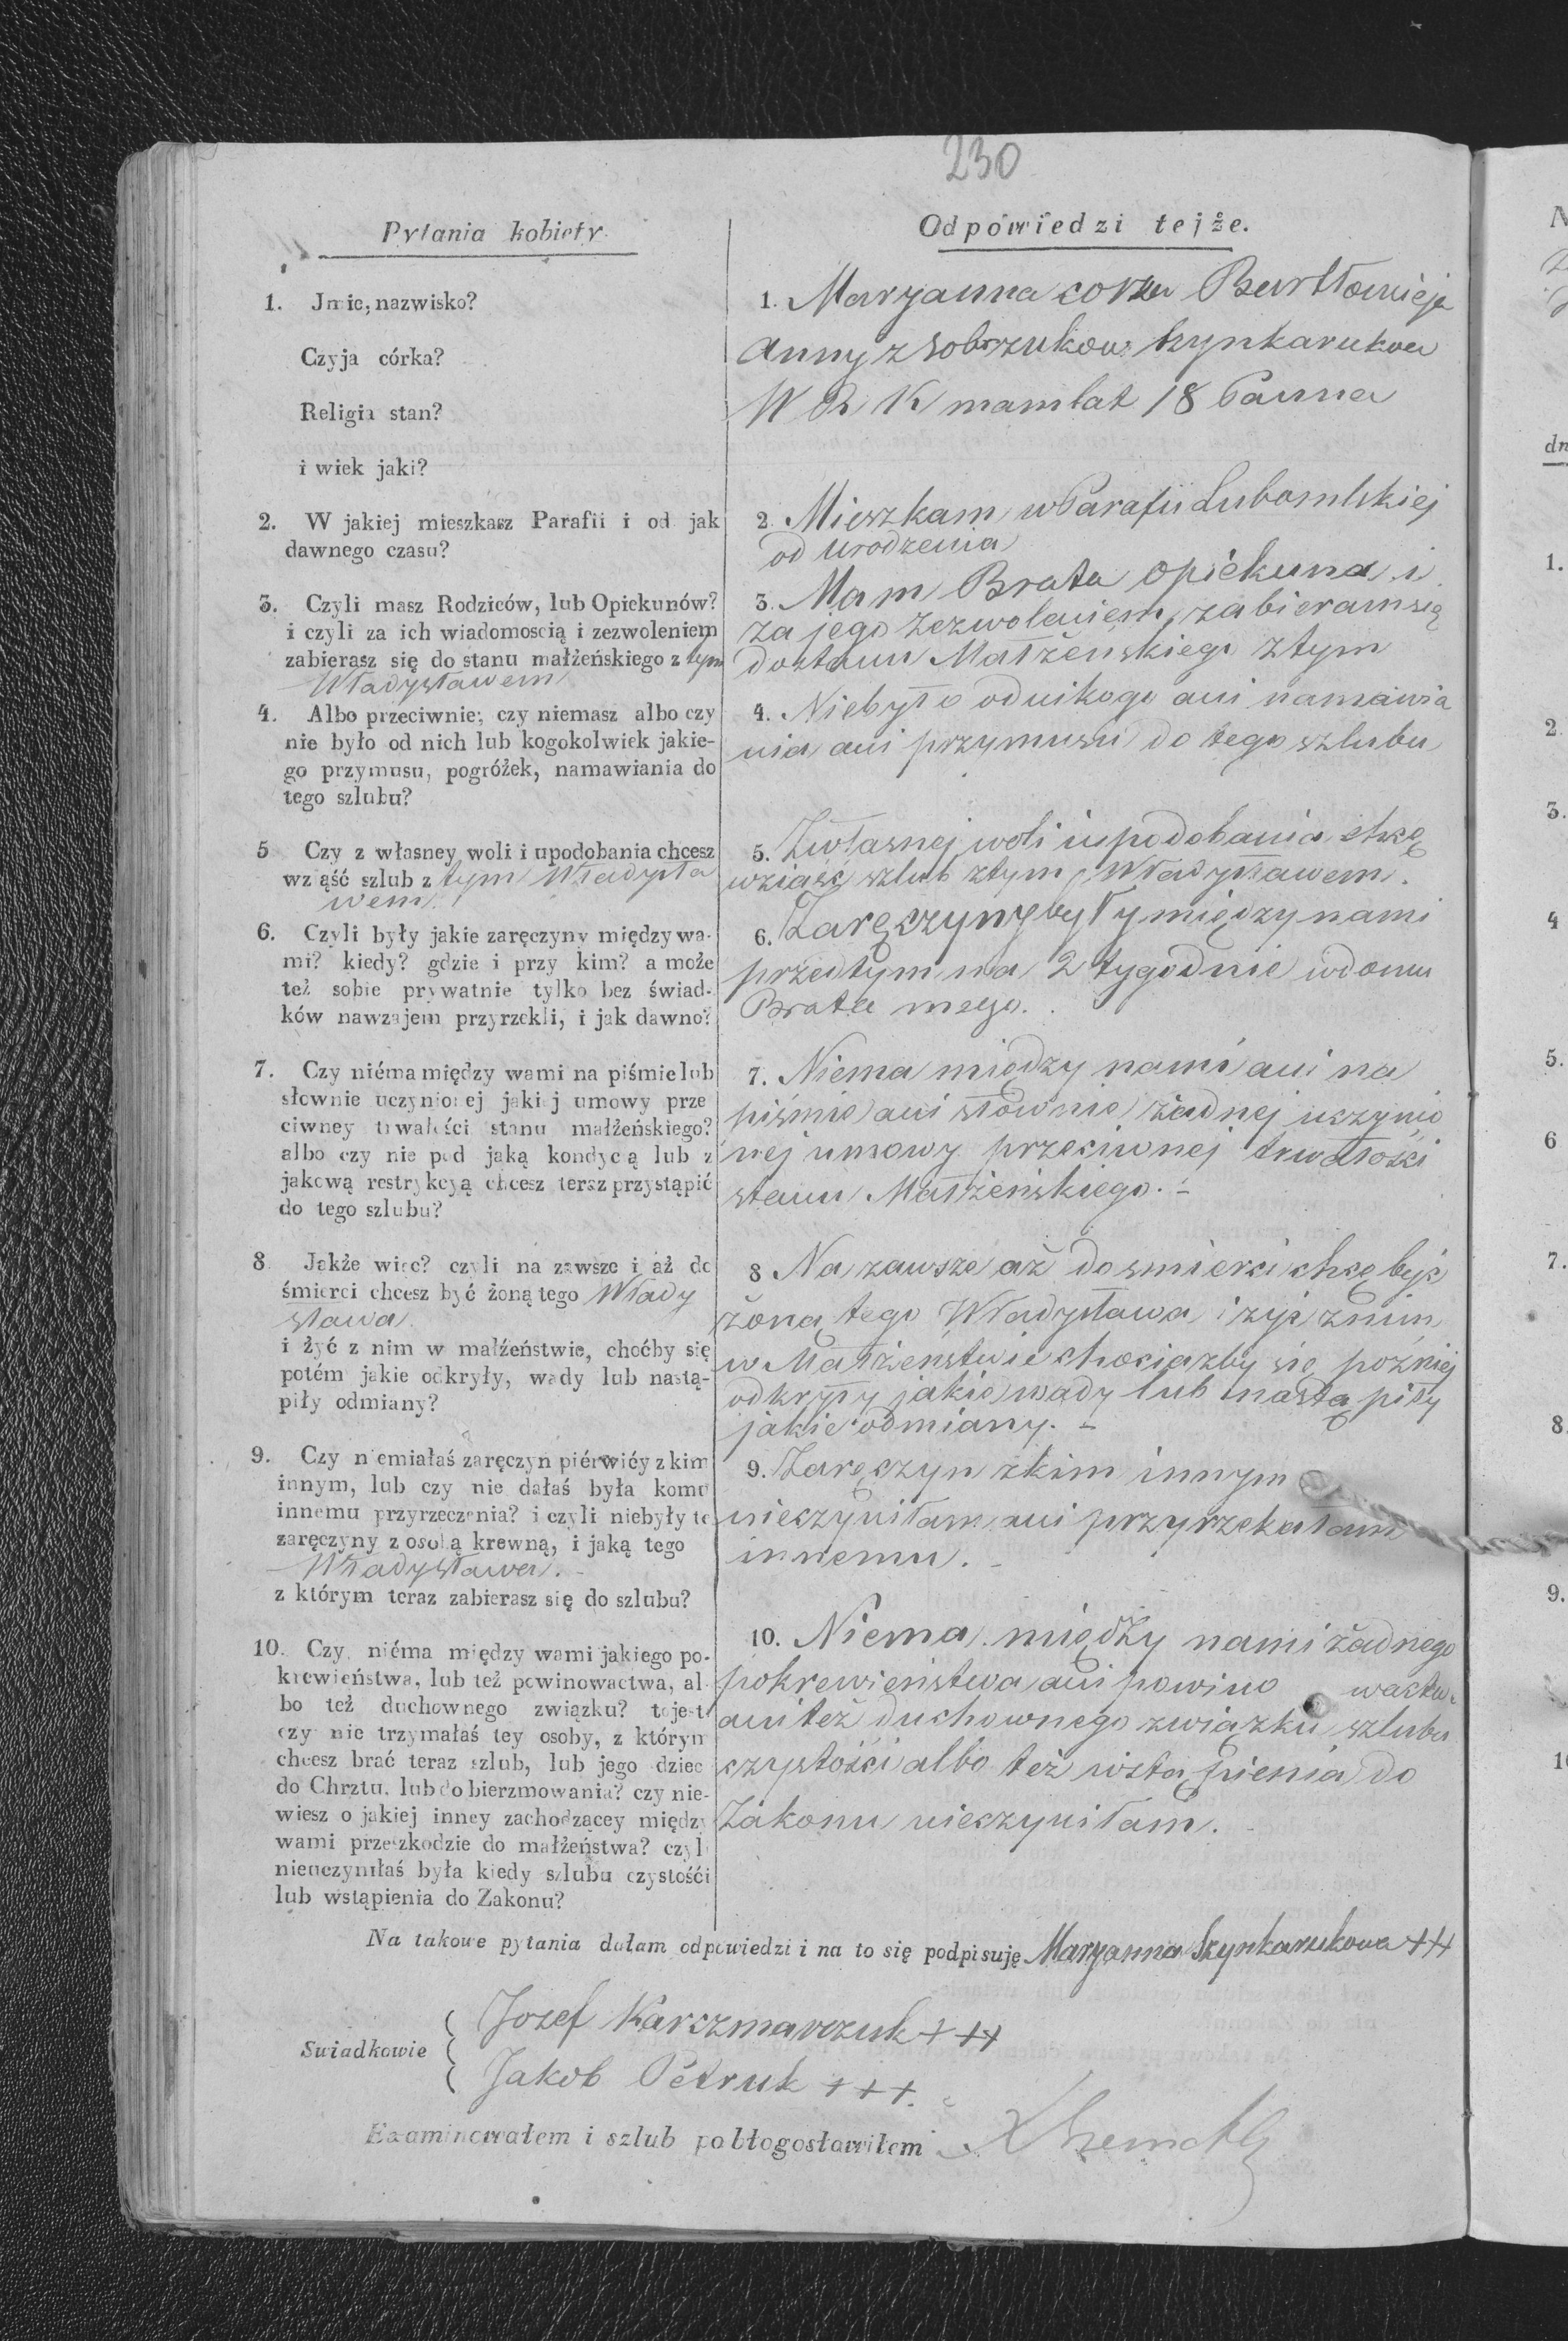 230
Pytania kobiety.
1. Jmie, nazwisko?
Czyja córka?
Religia stan?
i wiek jaki?
2. W jakiej mieszkasz Parafii i od jak
dawnego czasu?
3. Czyli masz Rodziców, lub Opiekunów?
i czyli za ich wiadomoscią i zezwoleniem
zabierasz się do stanu małżeńskiego z tym
Władysławem
4. Albo przeciwnie; czy niemasz albo czy
nie było od nich lub kogokolwiek jakie-
go przymusu, pogróżek, namawiania do
tego szlubu?
5 Czy z własney woli i upodobania chcesz
wziąść szlub z tym Władysła
wem
6. Czyli były jakie zaręczyny między wa-
mi? kiedy? gdzie i przy kim? a może
też sobie prywatnie tylko bez świad-
ków nawzajem przyrzekli, i jak dawno?
7. Czy niéma między wami na piśmie lub
słownie uczynionej jakiej umowy prze
ciwney trwałości stanu małżeńskiego?
albo czy nie pod jaką kondycą lub z
jakową restrykcyą chcesz teraz przystąpić
do tego szlubu?
8 Jakże więc? czyli na zawsze i aż do
śmierci chcesz być żoną tego Włady
sława
i żyć z nim w małżeństwie, choćby się
potém jakie odkryły, wady lub nastą-
piły odmiany?
9. Czy niemiałaś zaręczyn piérwićy z kim
innym, lub czy nie dałaś była komu
innemu przyrzeczenia? i czyli niebyły te
zaręczyny z osobą krewną, i jaką tego
Władysława.
z którym teraz zabierasz się do szlubu?
10. Czy niéma między wami jakiego po-
krewieństwa, lub też powinowactwa, al
bo też duchownego związku? to jest
czy nie trzymałaś tey osoby, z którym
chcesz brać teraz szlub, lub jego dziec
do Chrztu, lub do bierzmowania? czy nie-
wiesz o jakiej inney zachodzącey między
wami przeszkodzie do małżeństwa? czyli
nieuczyniłaś była kiedy szlubu czystośći
lub wstąpienia do Zakonu?
Odpowiedzi tejże.
1. Maryanna corka Bartłomieja
Anny z Szynkarukow
W R K mam lat 18 Panna
2. Mieszkam w Parafii Lubomlskiej
od urodzenia
3. Mam Brata opiekuna i
za jego zezwolaniem zabieram się
do stanu Małżeńskiego z tym
4. Niebyło od nikogo ani namawia
nia ani przymusu do tego szlubu
5. Z własnej woli i upodobania chcę
wziąść szlub z tym Władysławem.
6. Zaręczyny były między nami
przed tym na 2 tygodnie w domu
Brata mego.
7. Niema między nami ani na
piśmie ani słownie żadnej uczynio
nej umowy przeciwnej trwałości
stanu Małżeńskiego. –
8 Na zawsze aż do smierci chcę być
żoną tego Władysława i żyć z nim
w Małżeństwie chociażby się pożniej
odkryły jakie wady lub nastąpiły
jakie odmiany. –
9. Zaręczyn z kim innym
nieczyniłam ani przyrzekałam
innemu. –
10. Niema między nami żadnego
pokrewieństwa ani powino wactwa
ani też duchownego związku szlubu
czystości albo też wstąpienia do
Zakonu nieczyniłam.
Na takowe pytania dałam odpowiedzi i na to się podpisuję Maryanna Szynkarukowa ++
Swiadkowie
Jozef Karczmarczuk +++
Jakob Petruk +++.
Examinowałem i szlub pobłogosławiłem
N
dn
1.
2.
3.
4
5.
6
7.
8.
9.
10